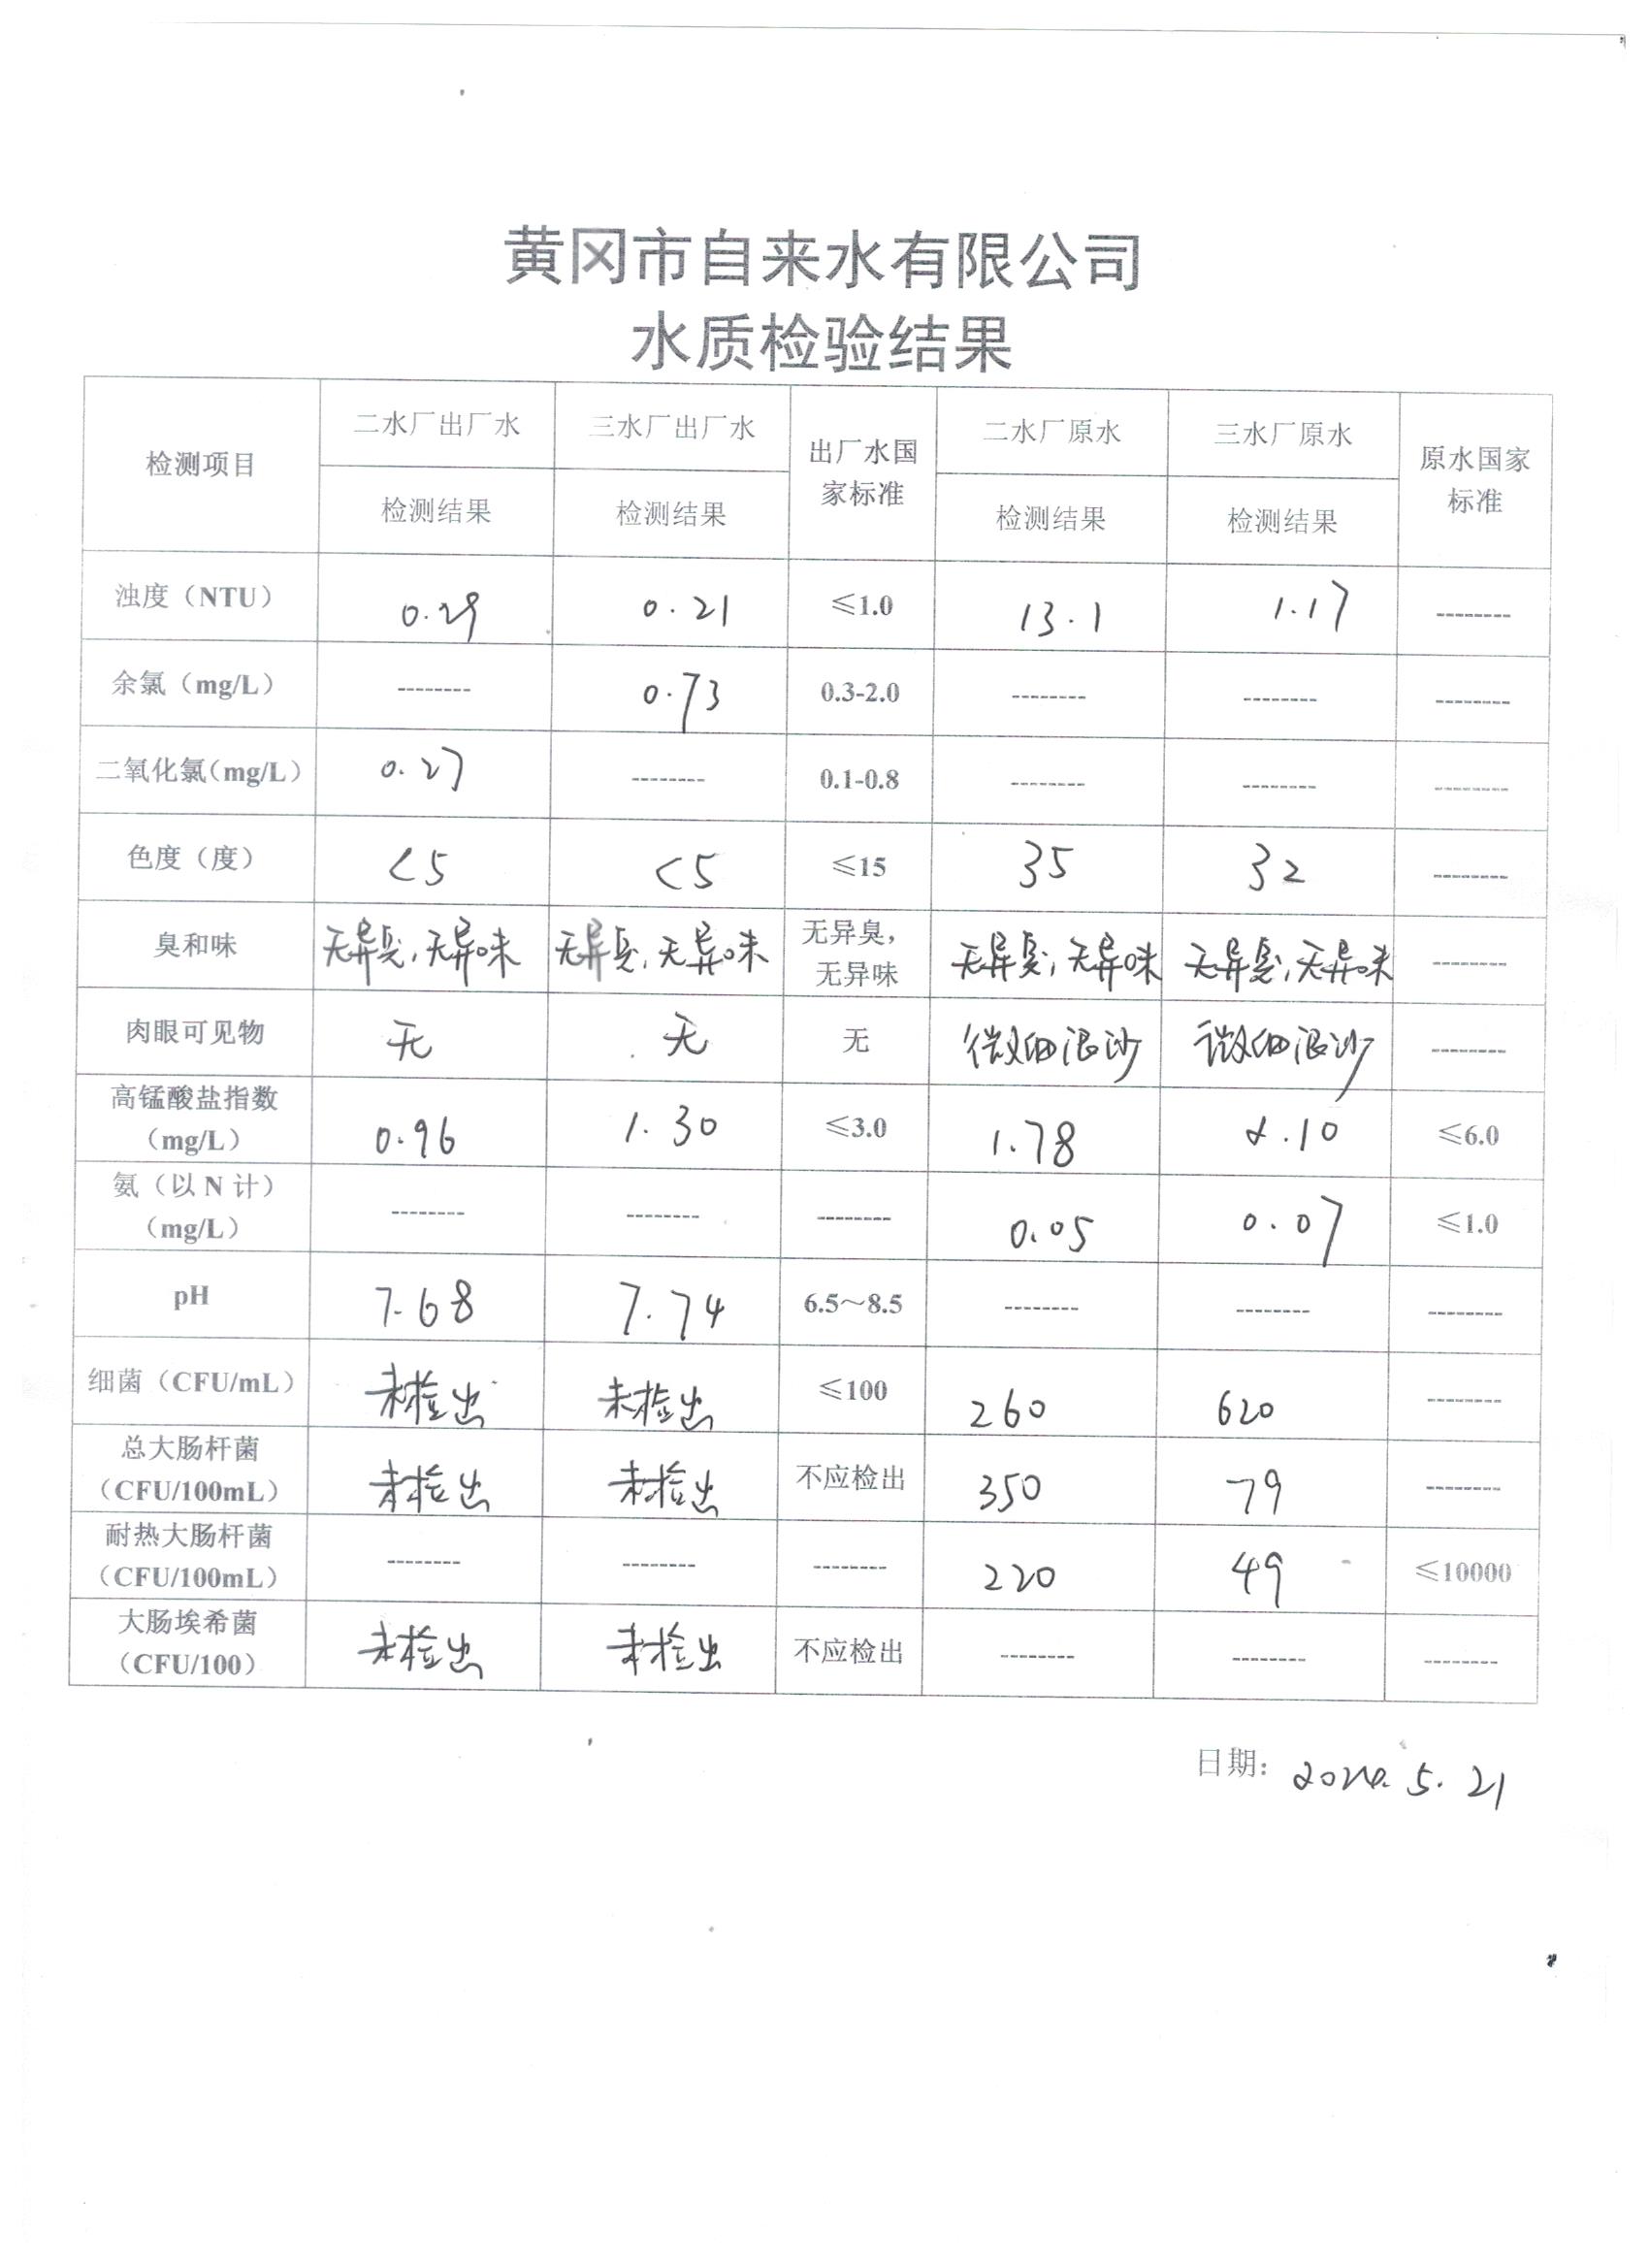 黄冈市自来水有限公司
水质检验结果
检测项目 二水厂出厂水 三水厂出厂水 出厂水国家标准 二水厂原水 三水厂原水 原水国家标准
检测结果 检测结果 检测结果 检测结果
浊度（NTU） 0.29 0.21 ≤1.0 13.1 1.17 --------
余氯（mg/L） -------- 0.73 0.3-2.0 -------- -------- --------
二氧化氯（mg/L） 0.27 -------- 0.1-0.8 -------- -------- --------
色度（度） <5 <5 ≤15 35 32 --------
臭和味 无异臭，无异味 无异臭，无异味 无异臭，无异味 无异臭，无异味 无异臭，无异味 --------
肉眼可见物 无 无 无 微细泥沙 微细泥沙 --------
高锰酸盐指数（mg/L） 0.96 1.30 ≤3.0 1.78 2.10 ≤6.0
氨（以N计）（mg/L） -------- -------- -------- 0.05 0.07 ≤1.0
pH 7.68 7.74 6.5～8.5 -------- -------- --------
细菌（CFU/mL） 未检出 未检出 ≤100 260 620 --------
总大肠杆菌（CFU/100mL） 未检出 未检出 不应检出 350 79 --------
耐热大肠杆菌（CFU/100mL） -------- -------- -------- 220 49 ≤10000
大肠埃希菌（CFU/100） 未检出 未检出 不应检出 -------- -------- --------
日期: 2024.5.21